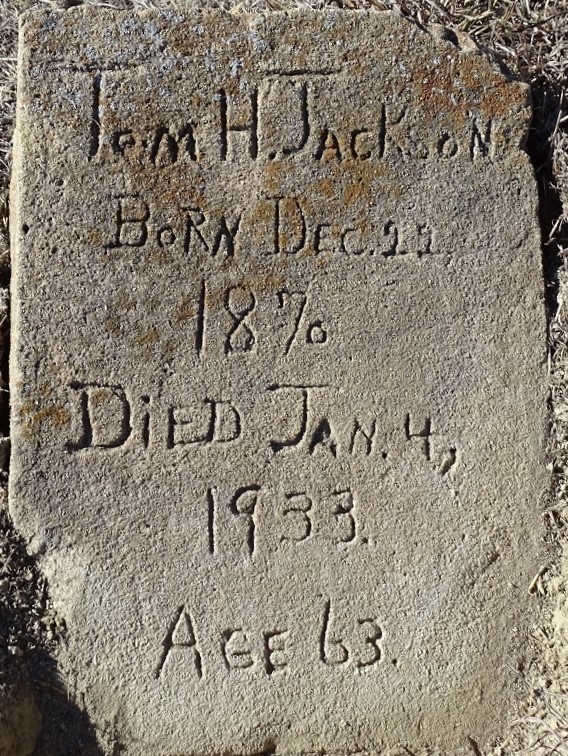 Tom H. Jackson
Born Dec. 22
1870
Died Jan. 4,
1933.
Age 63.